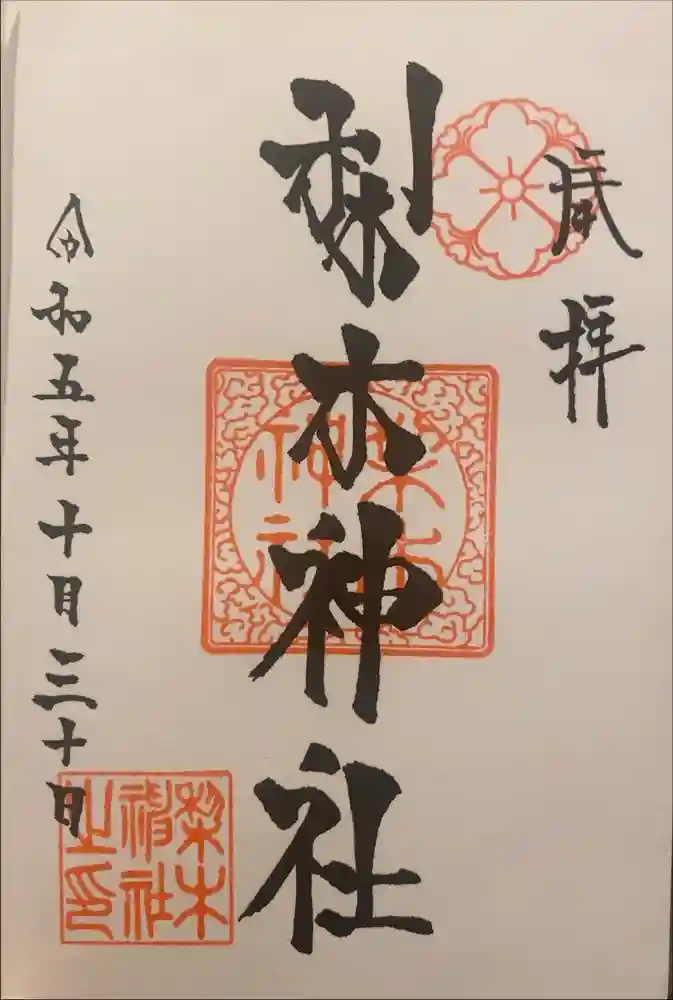 拝
梨木神社
梨木
神社
令和五年十月三十日
梨木
神社
之印